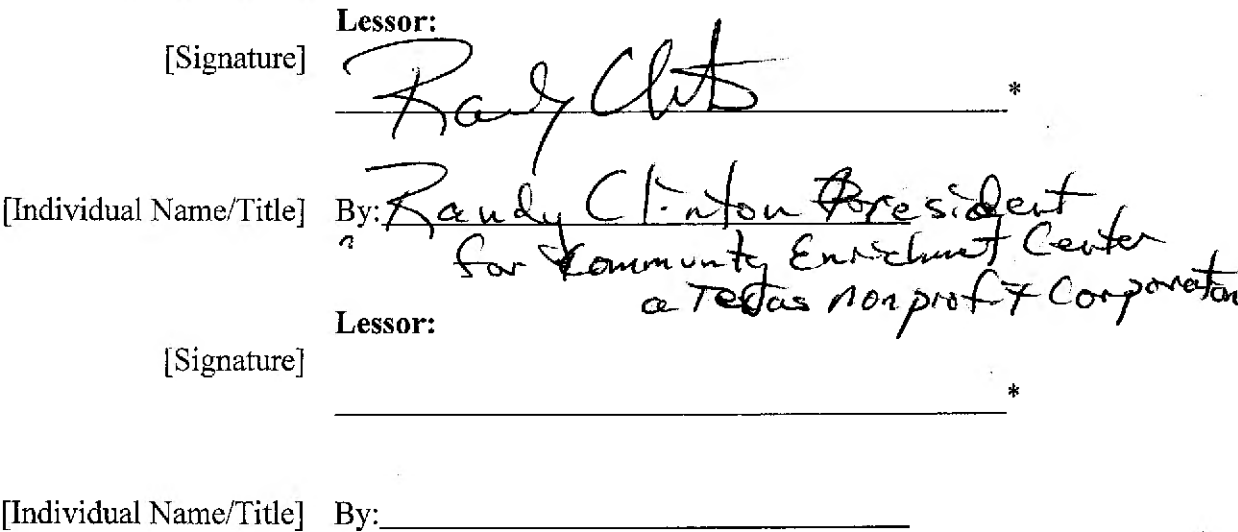 Lessor:
[Signature]
Randy Clinton
*
[Individual Name/Title] By: Randy Clinton President
for Community Enrichment Center
a Texas nonprofit Corporation
Lessor:
[Signature]
*
[Individual Name/Title] By: